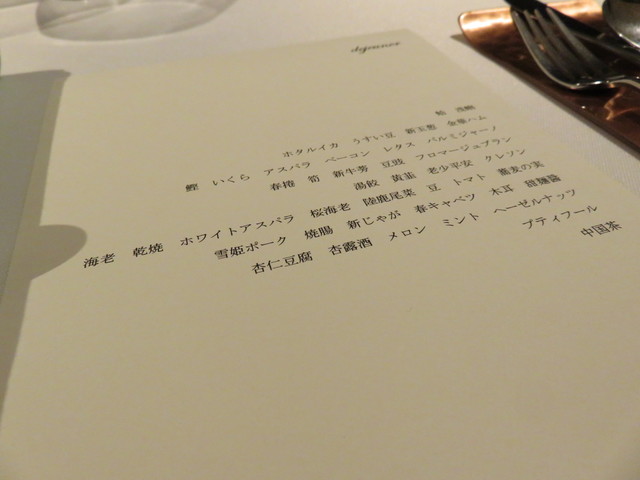 鮑 皮蛋
ホタルイカ うすい豆 新玉葱 金華ハム
鰹 いくら アスパラ ベーコン レタス パルミジャーノ
春捲 筍 新牛蒡 豆豉 フロマージュブラン
湯餃 黄韮 老少平安 クレソン
海老 乾焼 ホワイトアスパラ 桜海老 陸鹿尾菜 豆 トマト 蕎麦の実
雪姫ポーク 焼腸 新じゃが 春キャベツ 木耳 綠麺醤
杏仁豆腐 杏露酒 メロン ミント ヘーゼルナッツ
プティフール
中国茶